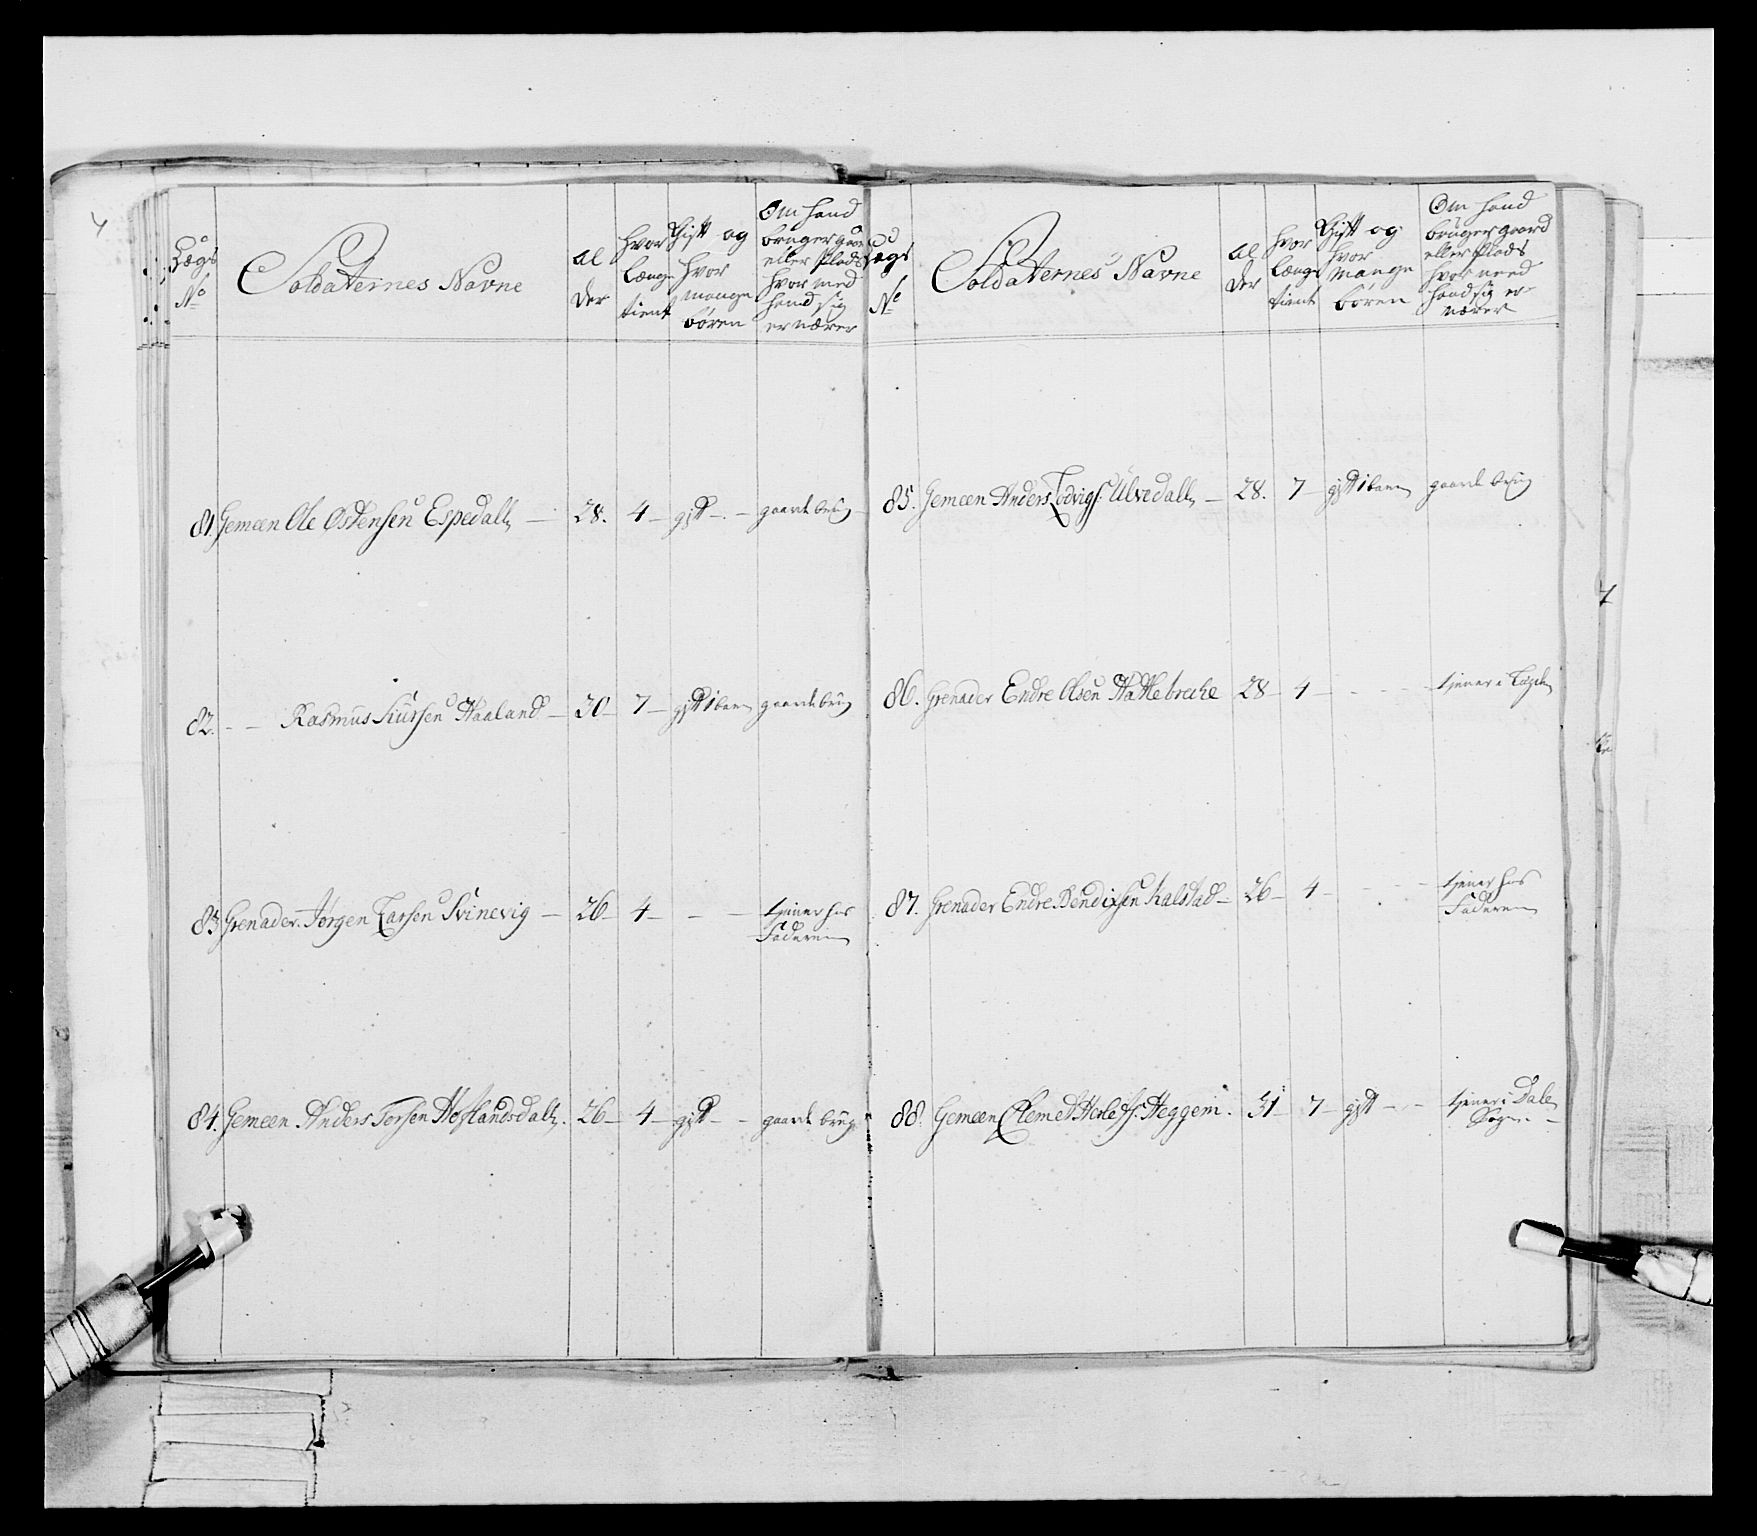 Lægs No
Soldaternes Navne
Al der
hvor Længe tient
Gift og hvor mange børen
Om hand bruger gaard eller Plads hvor med hand sig ernærer
81. Gemeen Ole Østensen Espedall — 28. 4 — gift — gaarde brug
82. — — Rasmus Siursen Haaland — 30 — 7 — gift 1 barn gaarde brug
83 Grenader Jørgen Larsen Svinevig — 26 — 4 — — — tjener hos
Faderen
84. Gemeen Anders Torsen Hoflandsdall. 26 — 4 — gift — gaarde brug
Lægs No
Soldaternes Navne
Al der
hvor Længe tient
Gift og hvor mange børen
Om hand bruger gaard eller Plads hvor med hand sig er nærer
85. Gemeen Anders Lodvigs: Ulvedall — 28. 7 — gift 1 barn gaarde brug
86. Grenader Endre Olsen Hatlebrecke 28 — 4 — — — tjener i
87. Grenader Endre Bendixsen Kalstad — 26 — 4 — — — tjener hos
Faderen
88. Gemeen Clemet Herlefs: Heggem. 31 — 7 — gift — — tjener i Dale
Sogn —